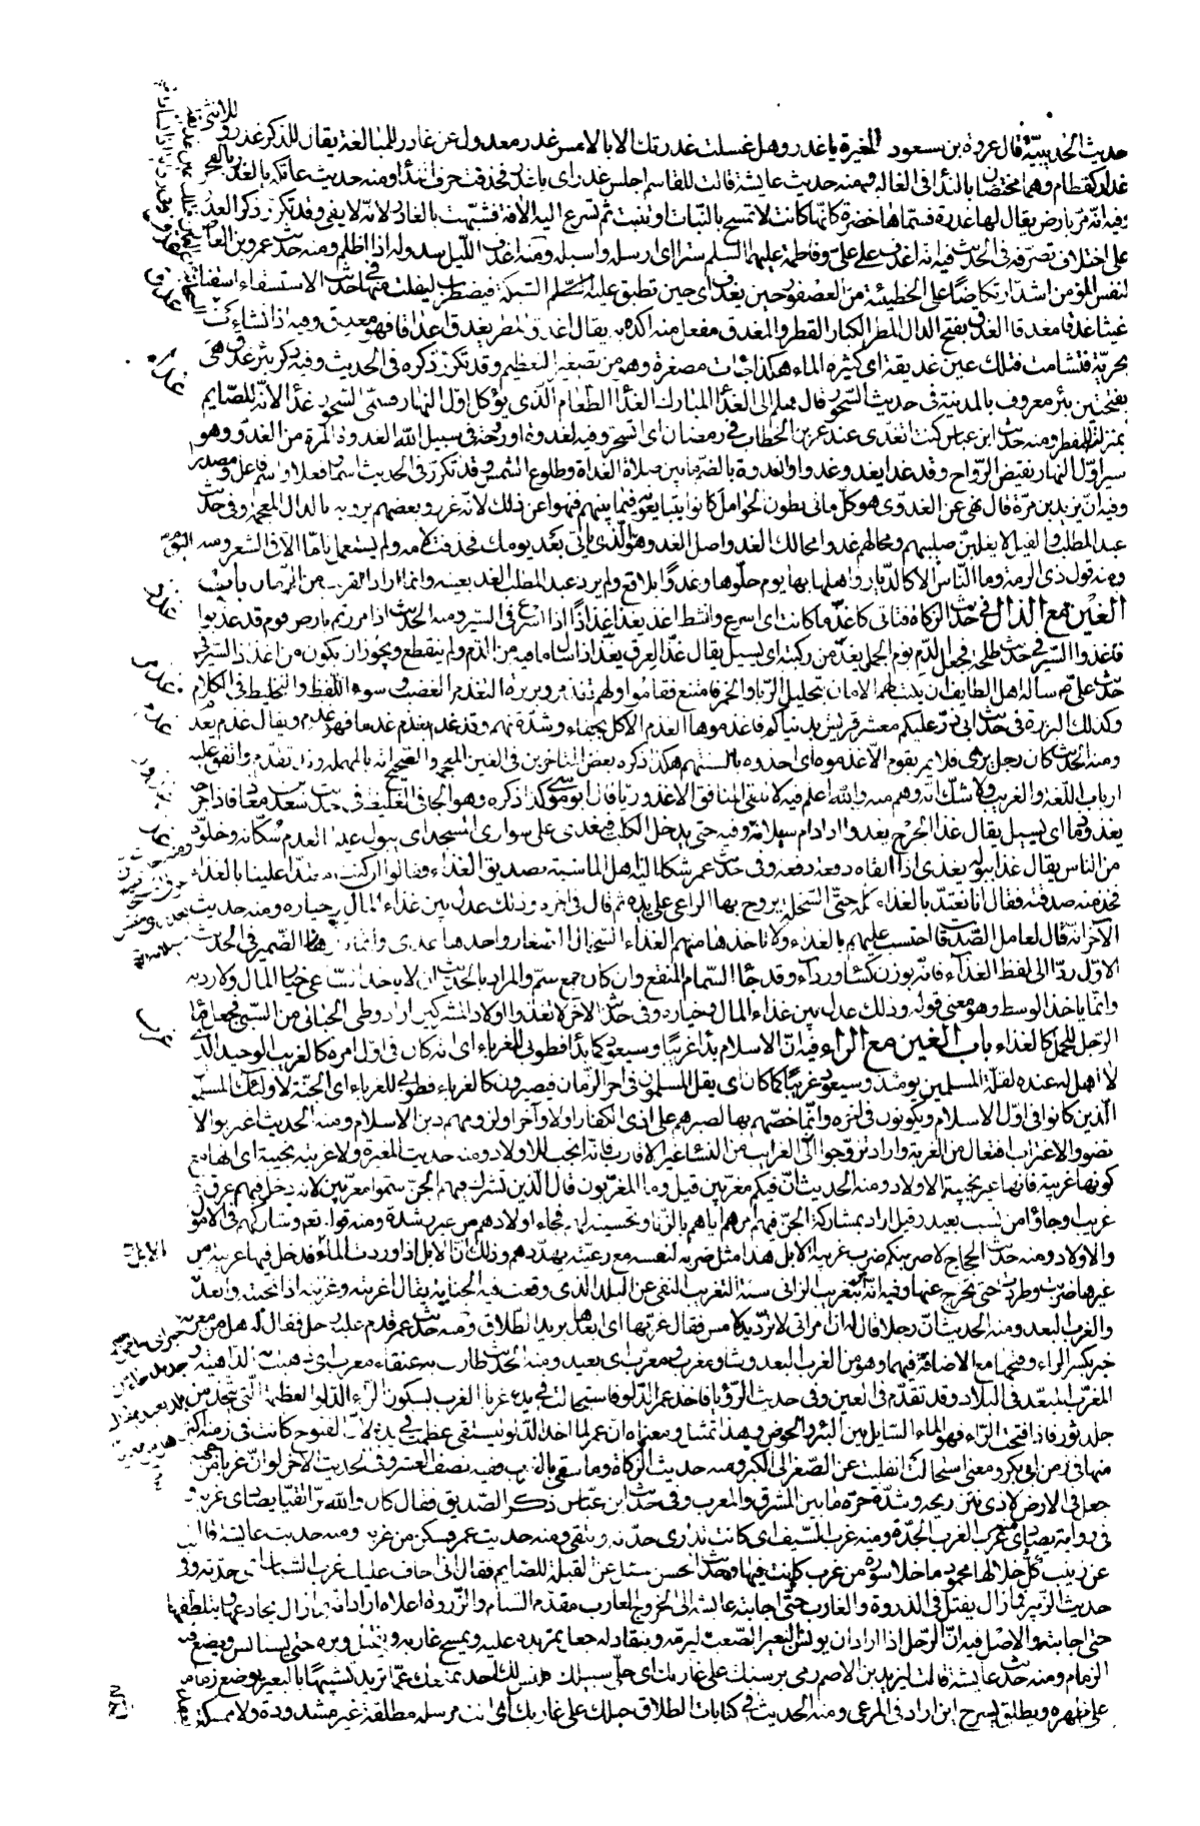 حديث الحديبية قال عروة بن مسعود للمغيرة يا غدر وهل غسلت غدرتك الا بالامس غدر معدول عن غادر للمبالغة يقال للذكر غدر و
للانثى
غدار كقطام وهما مختصان بالنداء فى الغالب ومنه حديث عايشة قالت للقاسم اجلس غدر اى يا غدر فحذفت حرف النداء ومنه حديث عاتكة يا لغدر
وفيه انه مر بارض يقال لها غدرة فسماها خضرة كانها كانت لا تسمح بالنبات او تنبت ثم تسرع اليه الآفة فشبهت بالغادر لانه لا يفى وقد تكرر ذكر الغدر
على اختلاف تصرفه فى الحديث فيه انه اغدف على على وفاطمة عليهما السلم سترا اى ارسله واسبله ومنه اغدف الليل سدوله اذا اظلم ومنه حديث عمرو بن العاص
لنفس المؤمن اشد ارتكاضا على الخطيئة من العصفور حين يغدف اى حين تطبق عليه الشبكة فيضطرب ليفلت منها فى حديث الاستسقاء اسقنا
غيثا غدقا مغدقا الغدق بفتح الدال المطر الكبار القطر والمغدق مفعل منه اكده به يقال اغدق المطر يغدق اغداقا فهو مغدق وفيه اذا نشأت
بحرية فتشامت فتلك عين غديقة اى كثيرة الماء هكذا جاءت مصغرة وهو من تصغير التعظيم وقد تكرر ذكره فى الحديث وفيه ذكر بئر غدق هى
بفتحتين بئر معروف بالمدينة فى حديث السحور قال هلم الى الغداء المبارك الغداء الطعام الذى يؤكل اول النهار فسمى السحور غداء لانه للصايم
بمنزلته للمفطر ومنه حديث ابن عباس كنت اتغدى عند عمر بن الخطاب فى رمضان اى اتسحر وفيه لغدوة او روحة فى سبيل الله الغدوة المرة من الغدو وهو
سير اول النهار نقيض الرواح وقد غدا يغدو غدوا والغدوة بالضم ما بين صلاة الغداة وطلوع الشمس وقد تكرر فى الحديث اسما وفعلا واسم فاعل ومصدر
وفيه ان يزيد بن مرة قال نهى عن الغدوى هو كل ما فى بطون الحوامل كانوا يتبايعونه فيما بينهم فنهوا عن ذلك لانه غرر وبعضهم يرويه بالذال المعجمة وفى حديث
عبد المطلب والفيل لا يغلبن صليبهم ومحالهم غدوا محالك الغدو اصل الغد وهو الذى يأتى بعد يومك فحذفت لامه ولم يستعمل تاما الا فى الشعر
ومنه قول ذى الرمة وما الناس الا كالديار واهلها بها يوم حلوها وغدوا بلاقع ولم يرد عبد المطلب الغد بعينه وانما اراد القريب من الزمان باب
الغين مع الذال فى حديث الزكاة فتأتى كاغذ ما كانت اى اسرع وانشط اغذ يغذ اغذاذا اذا اسرع فى السير ومنه الحديث اذا مررتم بارض قوم قد عذبوا
فاغذوا السير فى حديث طلحة فجعل الدم يوم الجمل يغذ من ركبته اى يسيل يقال غذ العرق يغذ اذا سال ما فيه من الدم ولم ينقطع ويجوز ان يكون من اغذاذ السير فى
حديث على سأله اهل الطايف ان يكتب لهم الامان بتحليل الربا والخمر فامتنع فقاموا ولهم تغذمر وبربرة التغذمر الغضب وسوء اللفظ والتخليط فى الكلام
وكذلك البربرة فى حديث ابى ذر عليكم معشر قريش بدنياكم فاغذموها الغذم الاكل بجفاء وشدة نهم وقد غذم يغذم غذما فهو غذم ويقال غذم يغذم
ومنه الحديث كان رجل يرائى فلا يمر بقوم الا غذموه اى اخذوه بالسنتهم هكذا ذكره بعض المتأخرين فى الغين المعجمة والصحيح انه بالمهملة وقد تقدم واتفق عليه
ارباب اللغة والغريب ولا شك انه وهم منه والله اعلم فيه لا تلقى المنافق الا غذوريا قال ابو موسى كذا ذكره وهو الجافى الغليظ فى حديث سعد بن معاذ فاذا جرحه
يغذو دما اى يسيل يقال غذا الجرح يغذو اذا دام سيلانه وفيه حتى يدخل الكلب فيغذى على سوارى المسجد اى يبول عليها لعدم سكانه وخلوه
من الناس يقال غذا ببوله يغذى اذا القاه دفعة دفعة وفى حديث عمر شكا اليه اهل الماشية تصديق الغذاء وقالوا ان كنت معتدا علينا بالغذاء
فخذ منه صدقته فقال انا نعتد بالغذاء كله حتى السخلة يروح بها الراعى على يده ثم قال فى آخره وذلك عدل بين غذاء المال وخياره ومنه حديث
الآخر انه قال لعامل الصدقات احتسب عليهم بالغذاء ولا تأخذها منهم الغذاء السخال الصغار واحدها غذى وانما ذكر الضمير فى الحديث
الاول ردا الى لفظ الغذاء فانه بوزن كساء ورداء وقد جاء السمام المنقع وان كان جمع سم والمراد بالحديث ان لا يأخذ الساعى خيار المال ولا رديه
وانما يأخذ الوسط وهو معنى قوله وذلك عدل بين غذاء المال وخياره وفى حديث الآخر لا تغذوا اولاد المشركين اراد وطى الحبالى من السبى فجعل ماء
الرجل للحمل كالغذاء باب الغين مع الراء فيه ان الاسلام بدأ غريبا وسيعود كما بدأ فطوبى للغرباء اى انه كان فى اول امره كالغريب الوحيد الذى
لا اهل له عنده لقلة المسلمين يومئذ وسيعود غريبا كما كان اى يقل المسلمون فى آخر الزمان فيصيرون كالغرباء فطوبى للغرباء اى الجنة لاولئك المسلمين
الذين كانوا فى اول الاسلام ويكونون فى آخره وانما خصهم بها لصبرهم على اذى الكفار اولا وآخرا ولزومهم دين الاسلام ومنه الحديث اغتربوا لا
تضووا الاغتراب افتعال من الغربة واراد تزوجوا الى الغرائب من النساء غير الاقارب فانه انجب للاولاد ومنه حديث المغيرة ولا غريبة نجيبة اى انها مع
كونها غريبة فانها غير نجيبة الاولاد ومنه الحديث ان فيكم مغربين قيل وما المغربون قال الذين تشرك فيهم الجن سموا مغربين لانه دخل فيهم عرق
غريب او جاؤا من نسب بعيد وقيل اراد بمشاركة الجن فيهم امرهم اياهم بالزنا وتحسينه لهم فجاء اولادهم من غير رشدة ومنه قوله تعالى وشاركهم فى الاموال
والاولاد ومنه حديث الحجاج لاضربنكم ضرب غريبة الابل هذا مثل ضربه لنفسه مع رعيته يهددهم وذلك ان الابل اذا وردت الماء فدخل فيها غريبة من
الابل
غيرها ضربت وطردت حتى تخرج عنها وفيه انه امر بتغريب الزانى سنة التغريب النفى عن البلد الذى وقعت فيه الجناية يقال اغربته وغربته اذا نحيته وابعدته
والغرب البعد ومنه الحديث ان رجلا قال له ان امراتى لا ترد يد لامس فقال غربها اى ابعدها يريد الطلاق ومنه حديث عمر قدم عليه رجل فقال له هل من مغربة
خبر بكسر الراء وفتحها مع الاضافة فيهما وهو من الغرب البعد وشاو مغرب ومغرب اى بعيد ومنه الحديث طارت به عنقاء مغرب اى ذهبت به الداهية
المغرب المبعد فى البلاد وقد تقدم فى العين وفى حديث الرؤيا فاخذ عمر الدلو فاستحالت فى يده غربا الغرب بسكون الراء الدلو العظيمة التى تتخذ من
جلد ثور فاذا فتحت الراء فهو الماء السايل بين البئر والحوض وهذا تمثيل ومعناه ان عمر لما اخذ الدلو ليستقى عظمت فى يده لان الفتوح كانت فى زمنه اكثر
منها فى زمن ابى بكر ومعنى استحالت انقلبت عن الصغر الى الكبر ومنه حديث الزكاة وما سقى بالغرب ففيه نصف العشر وفى الحديث الآخر لو ان غربا من جهنم
جعل فى الارض لآذى نتن ريحه وشدة حره ما بين المشرق والمغرب وفى حديث ابن عباس ذكر الصديق فقال كان والله برا تقيا يصادى غربه و
فى رواية يصادى منه غرب الغرب الحدة ومنه غرب السيف اى كانت تدارى حدته وتتقى ومنه حديث عمر فسكن من غربه ومنه حديث عايشة قالت
عن زينب كل خلالها محمود ما خلا سورة من غرب كانت فيها وحديث الحسن سئل عن القبلة للصايم فقال انى اخاف عليك غرب الشباب اى حدته وفى
حديث الزبير فما زال يفتل فى الذروة والغارب حتى اجابته عايشة الى الخروج الغارب مقدم السنام والذروة اعلاه اراد انه ما زال يخادعها ويتلطفها
حتى اجابته والاصل فيه ان الرجل اذا اراد ان يؤنس البعير الصعب ليزمه وينقاد له جعل يمر يده عليه ويمسح غاربه ويفتل وبره حتى يستأنس ويضع فيه
الزمام ومنه حديث عايشة قالت ليزيد بن الاصم رمى برسنك على غاربك اى خلى سبيلك فليس لك احد يمنعك عما تريد تشبيها بالبعير يوضع زمامه
على ظهره ويطلق يسرح اين اراد فى المرعى ومنه الحديث فى كنايات الطلاق حبلك على غاربك اى انت مرسلة مطلقة غير مشدودة ولا ممسكة
غدق
غدا
غذذ
غذمر
غذم
غذور
غذا
غرب